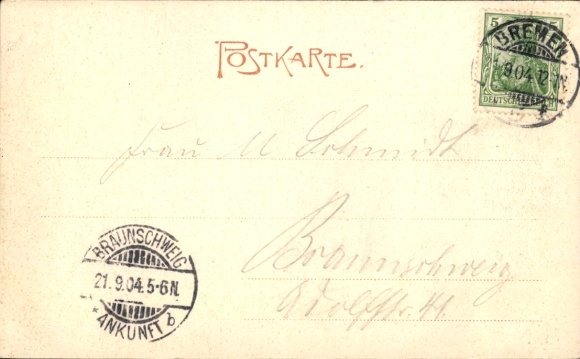 POSTKARTE.
5 5
DEUTSCHES REICH
BREMEN
9.04.12 N.
Frau M Schmidt
Braunschweig
Adolfstr. 41.
BRAUNSCHWEIG
21.9.04.5-6N.
* ANKUNFT b